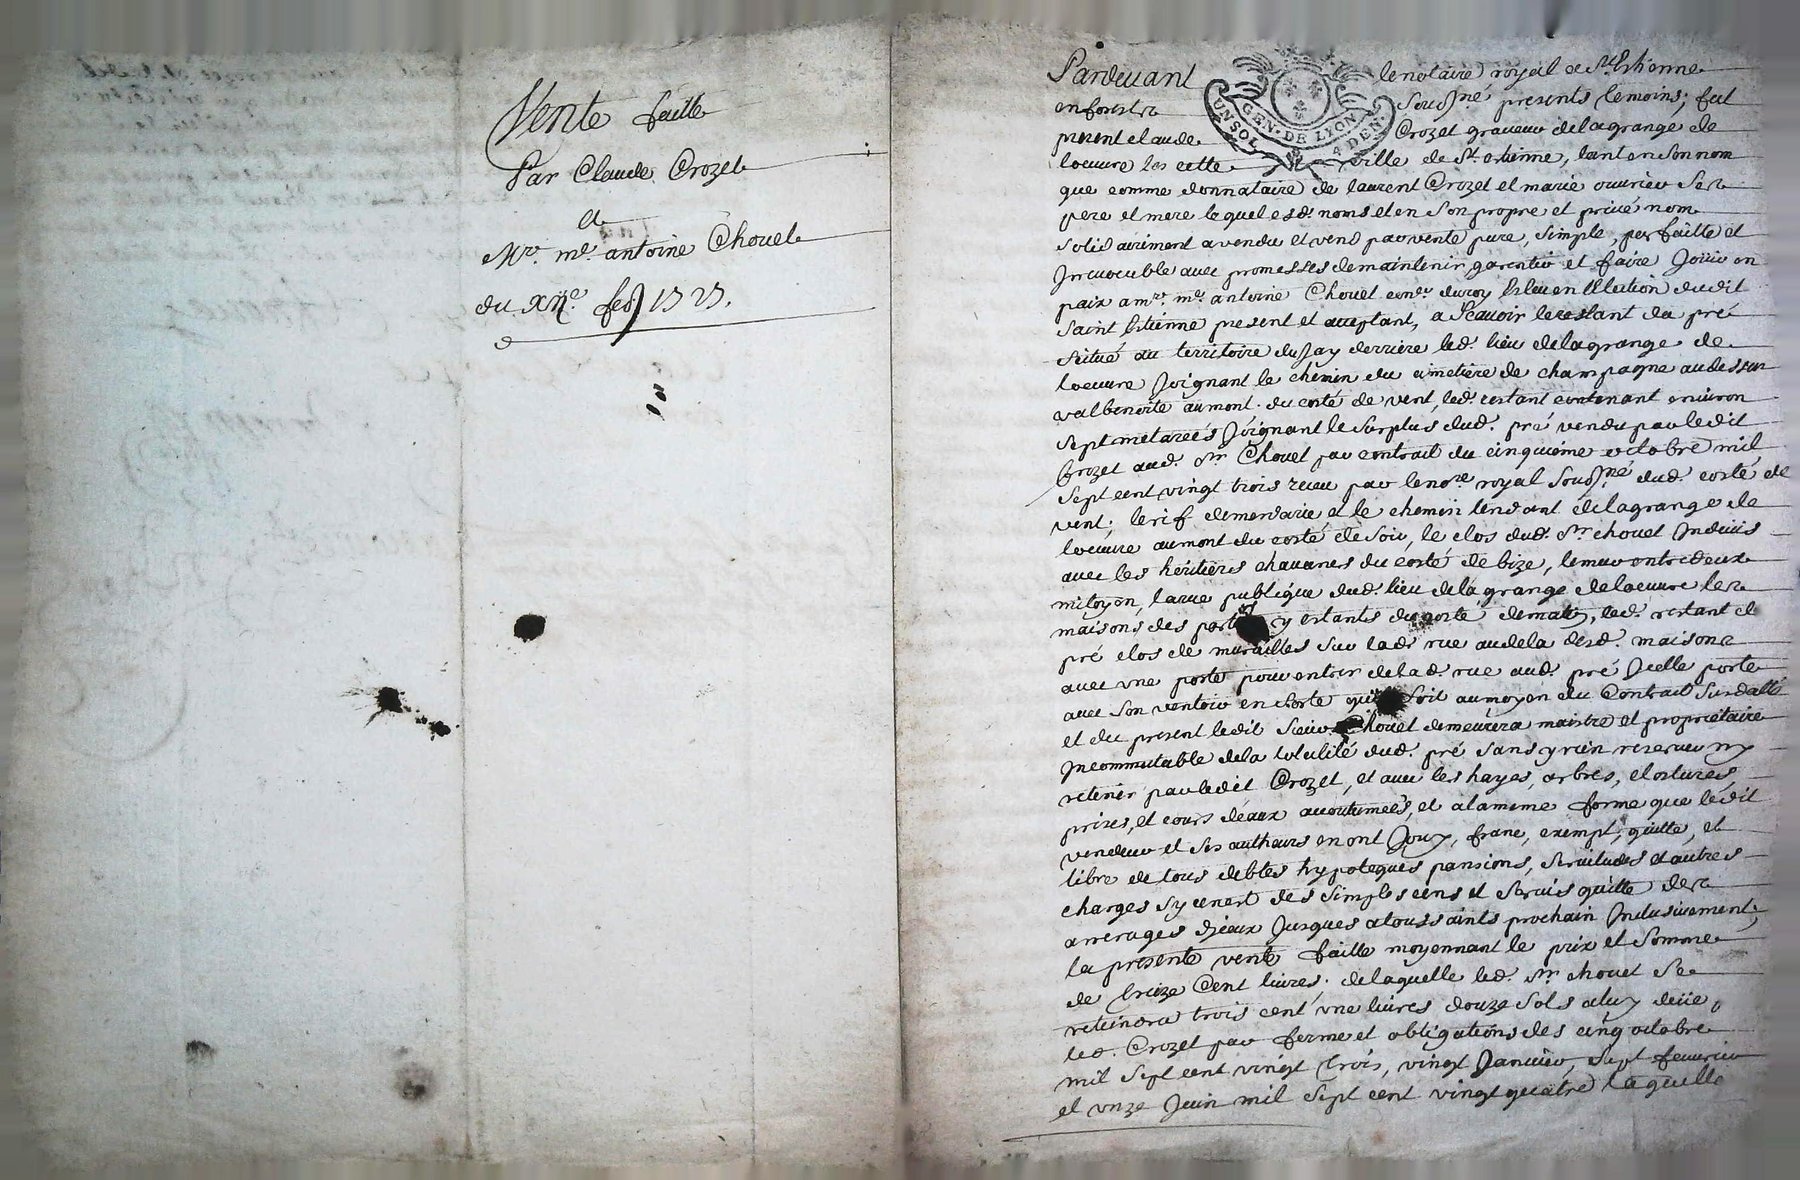 Vente faitte
Par Claude Crozet
a
Mr. me. antoine Chovet
du XIIe. feb. 1727.
Pardevant le notaire royal de St. Estienne
en forest sousné presents temoins; fut
present claude Crozet graveur de la grange de
loeuvre les cette ville de St. etienne, tant en son nom
que comme donnataire de laurent Crozet et marie ouvrier ses
pere et mere lequel esd. noms et en son propre et privé nom
solidairement a vendu et vend par vente pure, simple, parfaitte et
Irrevocable avec promesses de maintenir, garentir et faire Jouir en
paix a mr. me. antoine Chovet conr. du roy Esleu en l'Election dudit
Saint Estienne present et acceptant, a Scavoir le restant du pré
scitué au territoire du Jay derriere led. lieu de la grange de
loeuvre Joignant le chemin du cimetière de champagne au dessus
valbenoite au mont. du costé de vent, led. restant contenant environ
sept metareés Joignant le surplus dud. pré vendu par ledit
Crozet aud. Sr. Chovet par contrait du cinquieme octobre mil
sept cent vingt trois receu par le nore. royal sousné dud. costé de
vent; le rif de merdarie et le chemin tendant de la grange de
loeuvre au mont du costé de soir, le clos dud. Sr. chovet Indivis
avec les héritiers chavanes du costé de bize, le mur entredeux
mitoyen, la rue publique dud. lieu de la grange de loeuvre les
maisons des part y estants du costé de matin, led. restant de
pré clos de murailles sur lad. rue audela desd. maisons
avec une porte pour entrer de lad. rue aud. pré Icelle porte
avec son ventoir en sorte que soit au moyen du Contrait surdatté
et du present ledit Sieur Chovet demeurera maistre et proprietaire
Incommutable de la totalité dud. pré sans y rien reserver ny
retenir par ledit Crozet, et avec les hayes, arbres, clostures,
prises, et cours d'eaux accoutumeés, et a la meme forme que lédit
vendeur et ses autheurs en ont Jouy, franc, exempt, quitte, et
libre de tous debtes hypoteques pansions, servitudes et autres
charges sy ce n'est des simples cens et servis quitte des
arrerages d'iceux Jusques a toussaints prochain Inclusivement,
la presente vente faitte moyennant le prix et somme
de treize Cent livres. de laquelle led. Sr. chovet se
retiendra trois cent une livres douze sols a luy deüe
led. Crozet par ferme et obligations des cinq octobre
mil sept cent vingt trois, vingt Janvier, sept fevrier
et unze Juin mil sept cent vingt quatre laquelle
GEN. DE LYON
UN SOL 4 DEN.